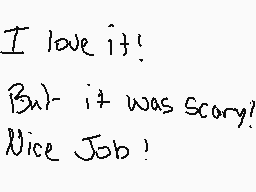 I love it!
But it was scary!
Nice Job!